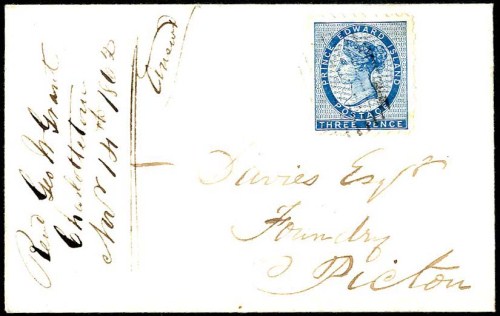 Revd Geo M Grant
Charlottetown
Novr 14th 1862
Answd
PRINCE EDWARD ISLAND
POSTAGE
THREE PENCE
Davies Esqr
Foundry
Picton